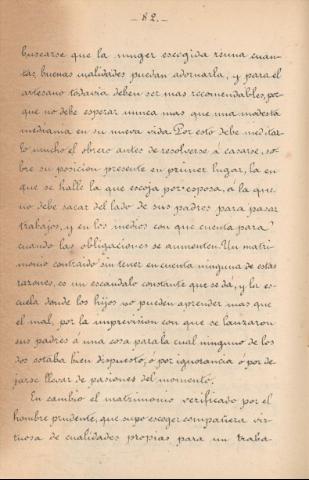 - 82. -
buscarse que la muger escogida reuna cuan-
tas buenas cualidades puedan adornarla, y para el
artesano todavia deben ser mas recomendables, por-
que no debe esperar nunca mas que una modesta
mediania en su nueva vida. Por esto debe meditar-
lo mucho el obrero antes de resolverse á casarse, so-
bre su posicion presente en primer lugar, la en
que se halle la que escoja por esposa, á la que
no debe sacar del lado de sus padres para pasar
trabajos, y en los medios con que cuenta para
cuando las obligaciones se aumenten. Un matri-
monio contraido sin tener en cuenta ninguna de estas
razones, es un escandalo constante que se dá, y la es-
cuela donde los hijos no pueden aprender mas que
el mal, por la imprevision con que se lanzaron
sus padres á una cosa para la cual ninguno de los
dos estaba bien dispuesto, ó por ignorancia ó por de-
jarse llevar de pasiones del momento.
En cambio el matrimonio verificado por el
hombre prudente, que supo escoger compañera vir-
tuosa de cualidades propias para un traba-